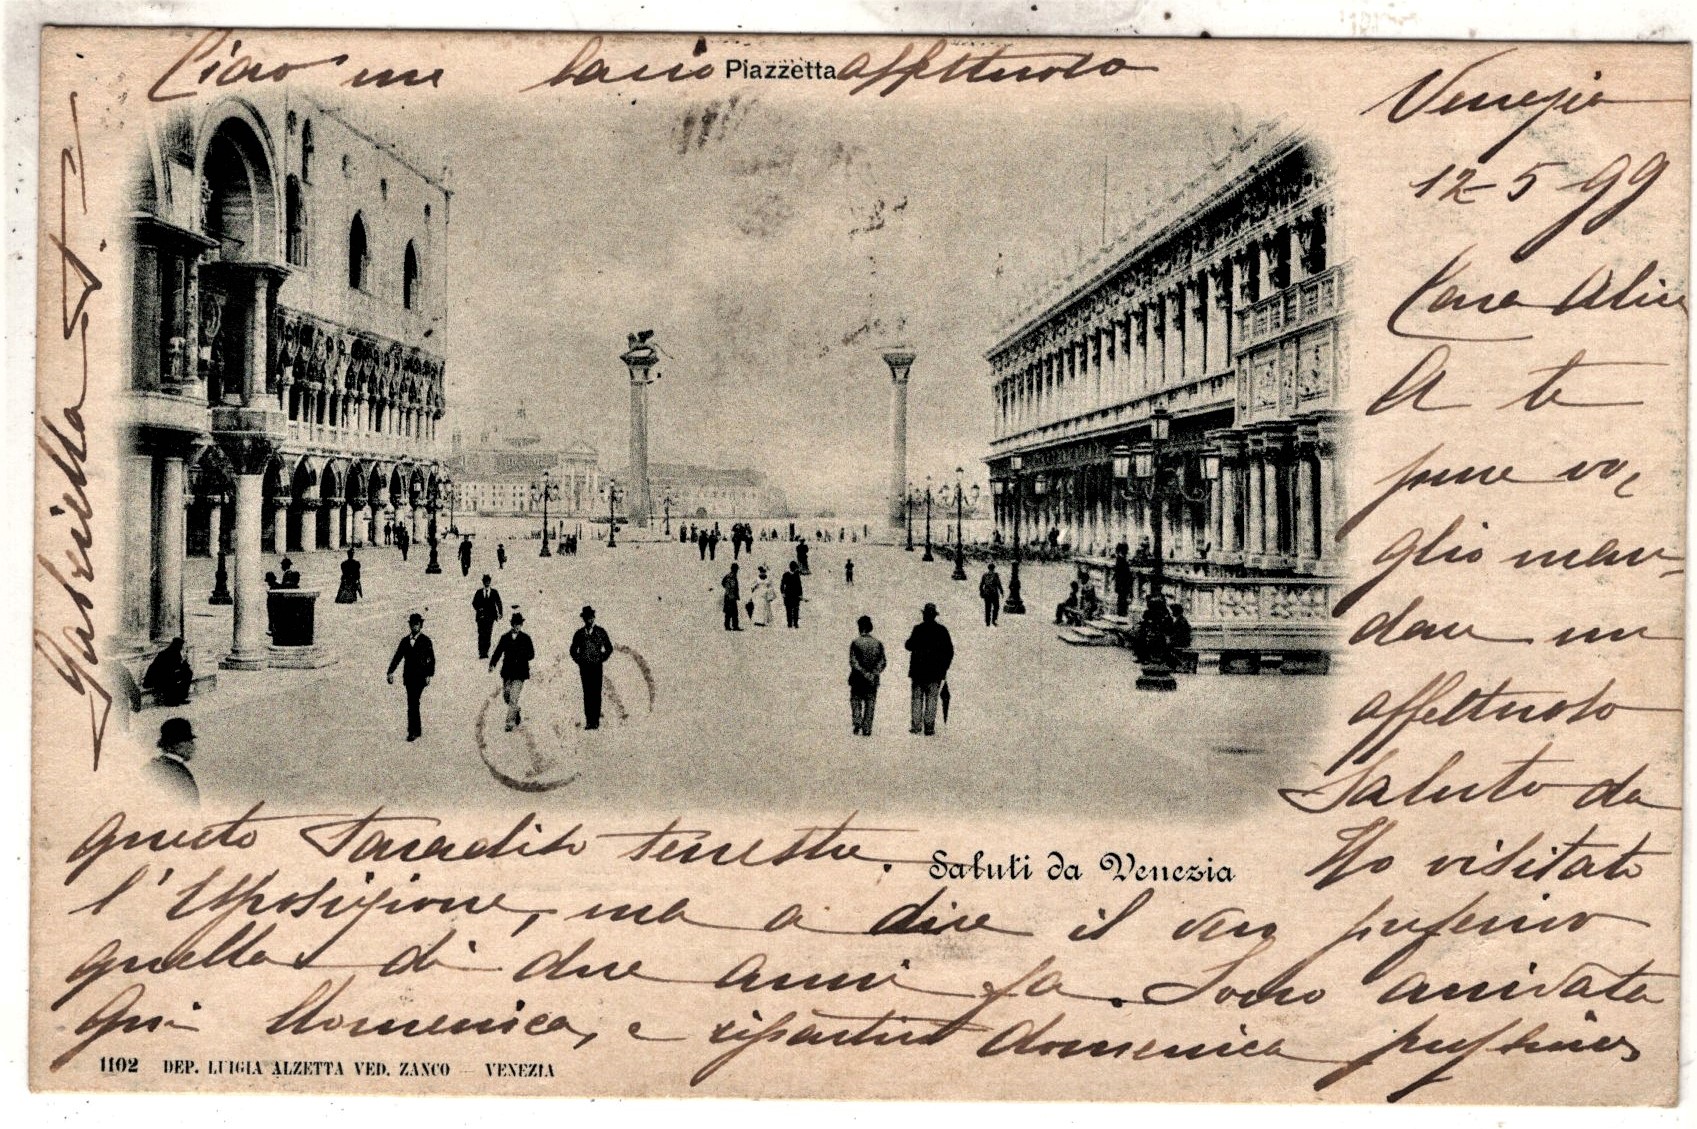 Ciao un bacio affettuoso
Piazzetta
Venezia
12-5-99
Cara Alice
A te
pure vo
glio man-
dare un
affettuoso
Saluto da
questo Paradiso terrestre.
Saluti da Venezia
Ho visitato
l'Esposizione, ma a dire il vero preferivo
quella di due anni fa. Sono arrivata
qui Domenica, e ripartirò domenica
Gabriella A.
1102 DEP. LUIGIA ALZETTA VED. ZANCO - VENEZIA